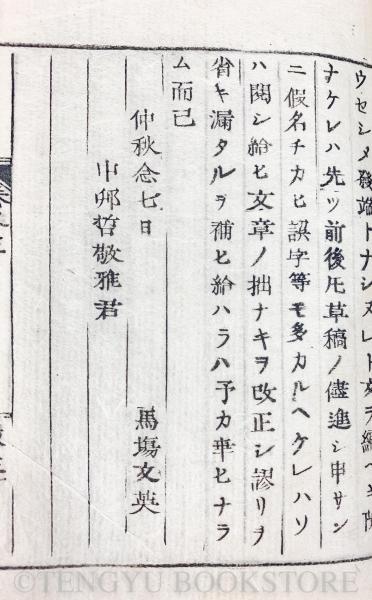 ウセシメ發端トナシヌレト文ヲ編ヘキ
ナケレハ先ツ前後𪜈草稿ノ儘進シ申サン
ニ假名チカヒ誤字等モ多カルヘケレハソ
ハ閲シ給ヒ文章ノ拙ナキヲ改正シ謬リヲ
省キ漏タルヲ補ヒ給ハラハ予カ幸ヒナラ
ム而已
仲秋念七日　馬塲文英
中邨哲敬雅君
©TENGYU BOOKSTORE